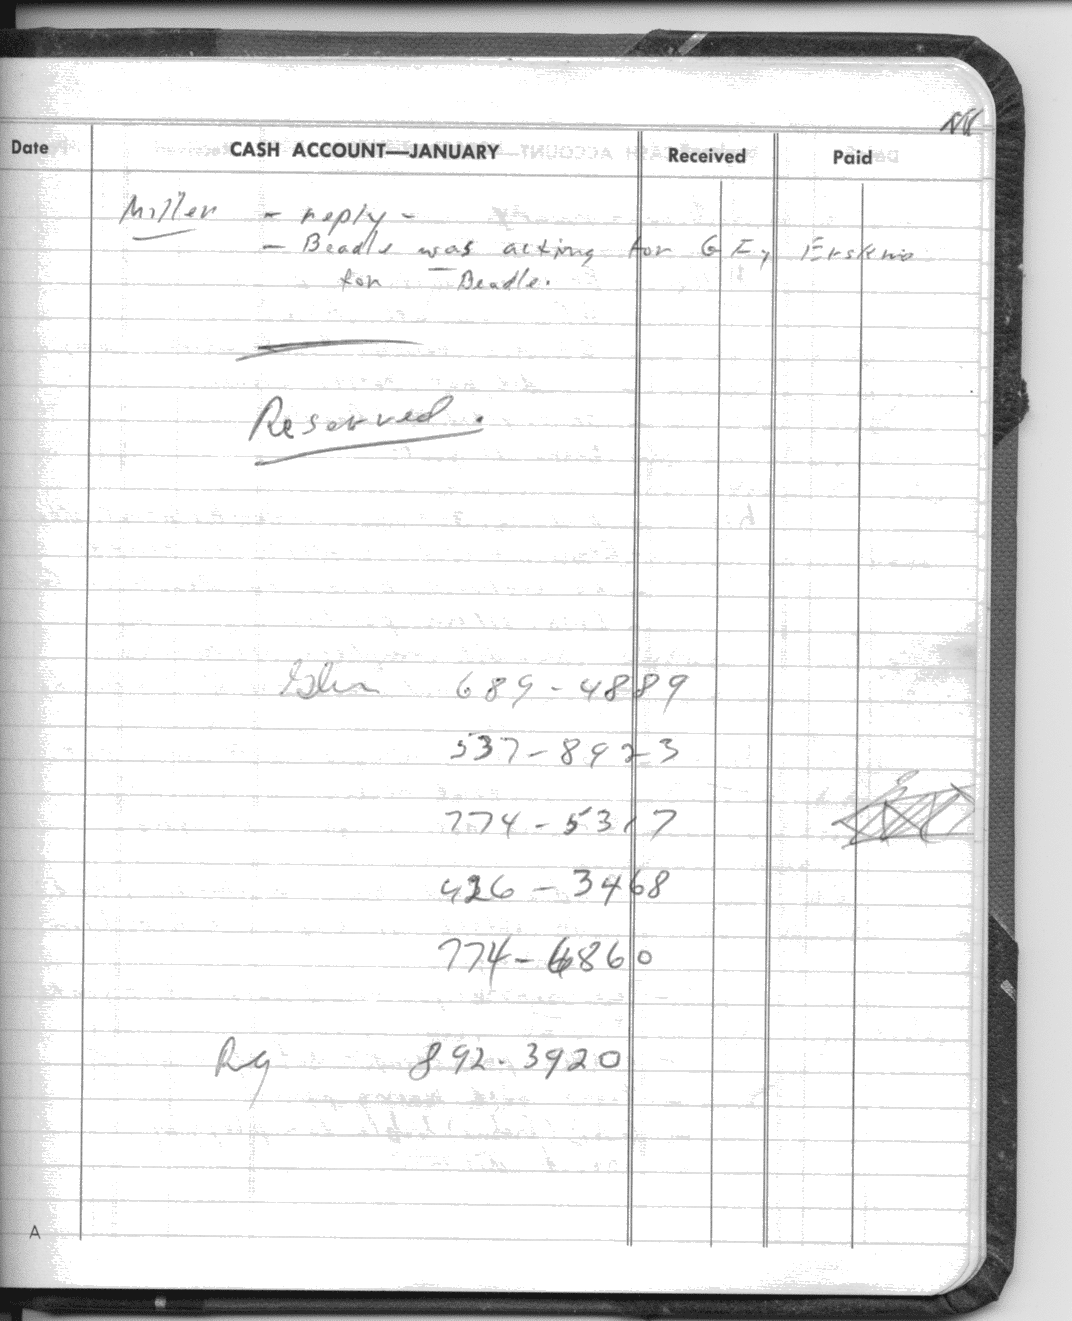 Date CASH ACCOUNT—JANUARY Received Paid
Miller - reply -
- Beadle was acting for G E, Erskine
for Beadle.
Reserved.
689-4889
537-8923
774-5317
426-3468
774-6860
Rg 892-3920
A